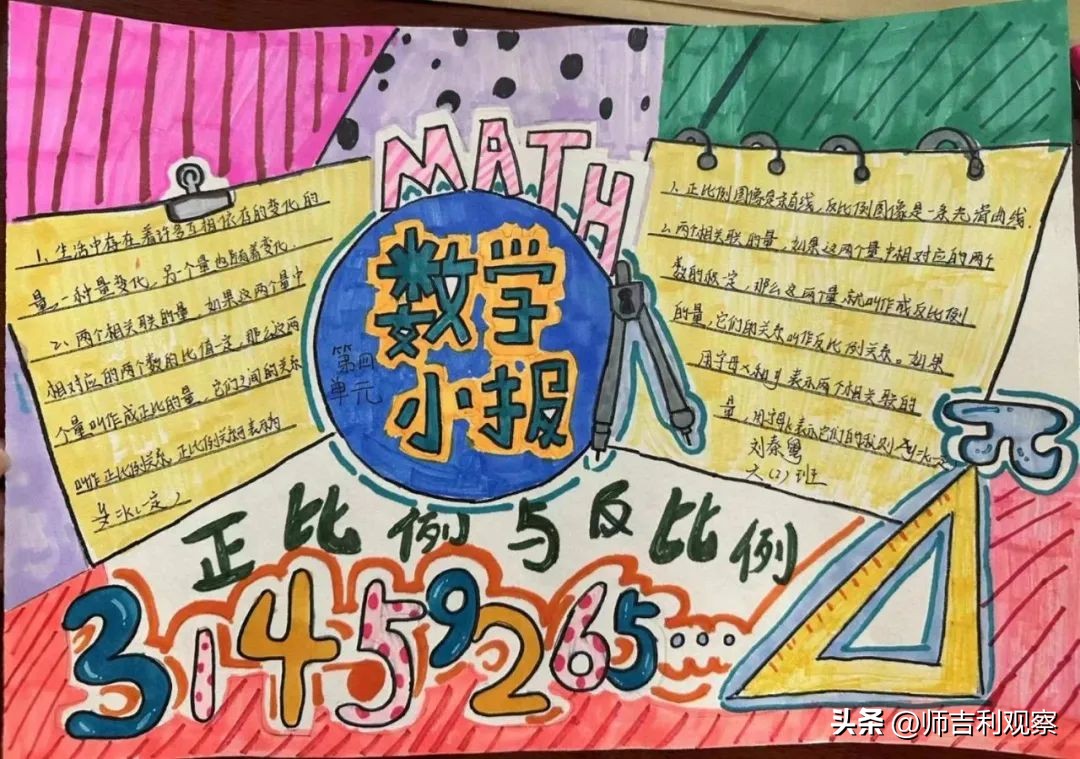 MATH
数学
小报
第四
单元
1、生活中存在着许多互相依存的变化的
量一种量变化，另一个量也随着变化.
2、两个相关联的量，如果这两个量中
相对应的两个数的比值一定，那么这两
个量叫作成正比的量，它们之间的关系
叫作正比例关系，正比例关系可表示为
=k(一定)
1、正比例图像是一条直线，反比例图像是一条光滑曲线.
2、两个相关联的量，如果这两个量中相对应的两个
数的积一定，那么这两量就叫作成反比例
的量，它们的关系叫作反比例关系。如果
用字母x和y表示两个相关联的
量，用字母k表示它们的
刘秦粤
六(2)班
正比例与反比例
3 1 4 5 9 2 6 5 ...
头条 @师吉利观察